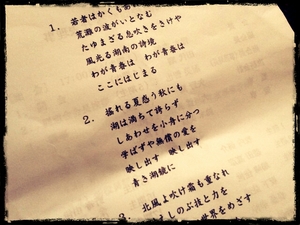 1. 若者はかくも
荒灘の波がいとなむ
たゆまざる息吹をきけや
風光る湖南の詩境
わが青春は わが青春は
ここにはじまる
2. 揺れる夏愁う秋にも
湖は満ちて誇らず
しあわせを小舟に分つ
学ばずや無償の愛を
映し出す 映し出す
青き湖鏡に
3. 北風よ吹け霜も重なれ
しのぶ技と力を
世界をめざす